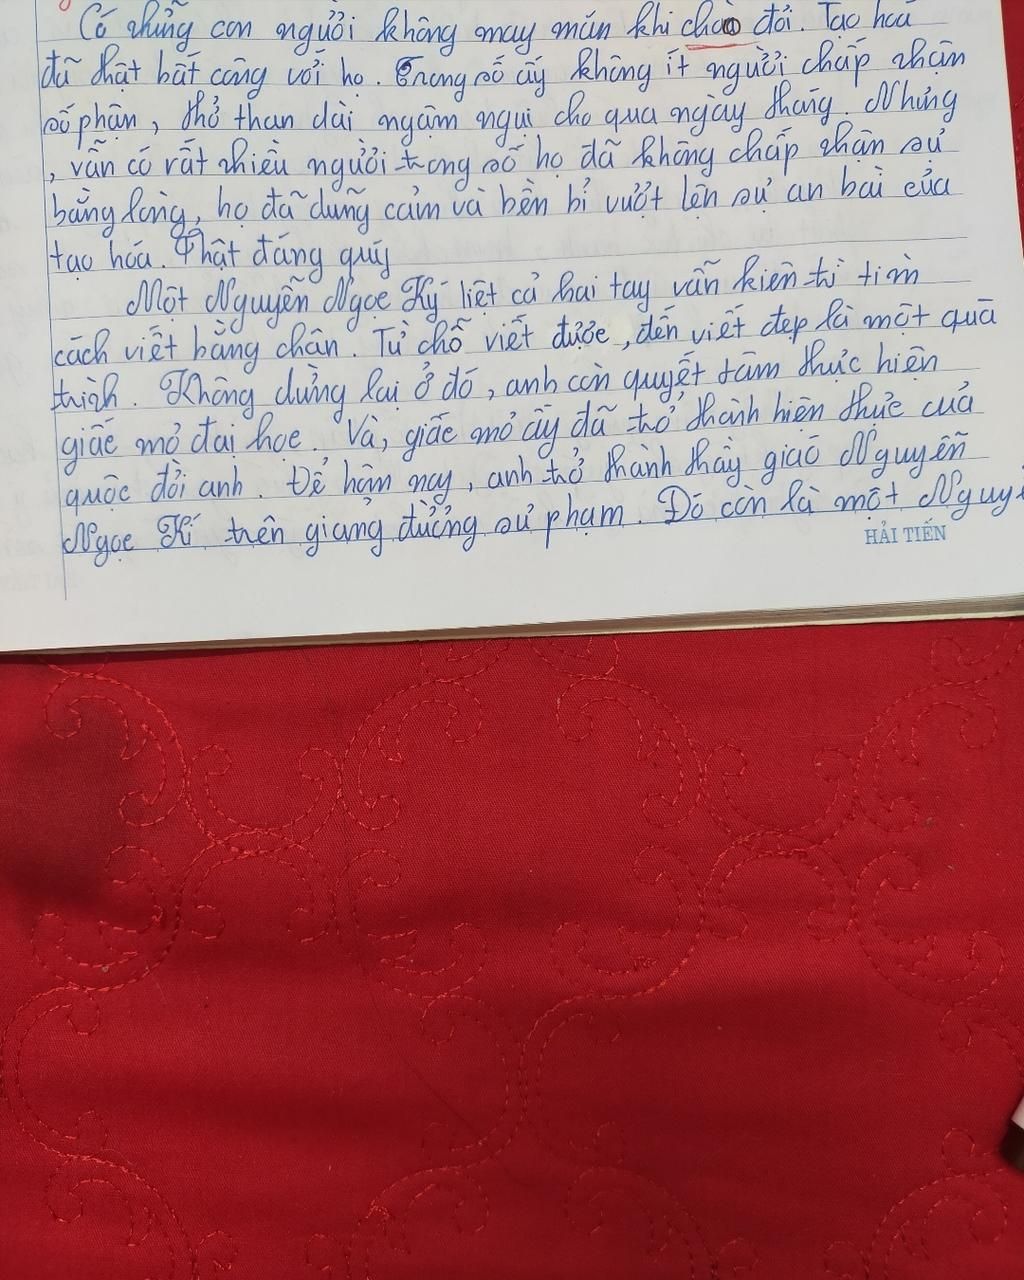 Có những con người không may mắn khi chào đời. Tạo hoá
đã thật bất công với họ. Trong số ấy không ít người chấp nhận
số phận, thở than dài ngậm ngùi cho qua ngày tháng. Nhưng
, vẫn có rất nhiều người trong số họ đã không chấp nhận sự
bằng lòng, họ đã dũng cảm và bền bỉ vượt lên sự an bài của
tạo hóa. Thật đáng quý
Một Nguyễn Ngọc Ký liệt cả hai tay vẫn kiên trì tìm
cách viết bằng chân. Từ chỗ viết được, đến viết đẹp là một quá
trình. Không dừng lại ở đó, anh còn quyết tâm thực hiện
giấc mơ đại học. Và, giấc mơ ấy đã trở thành hiện thực của
cuộc đời anh. Để hôm nay, anh trở thành thầy giáo Nguyễn
Ngọc Kí trên giảng đường sư phạm. Đó còn là một Nguy
HẢI TIẾN